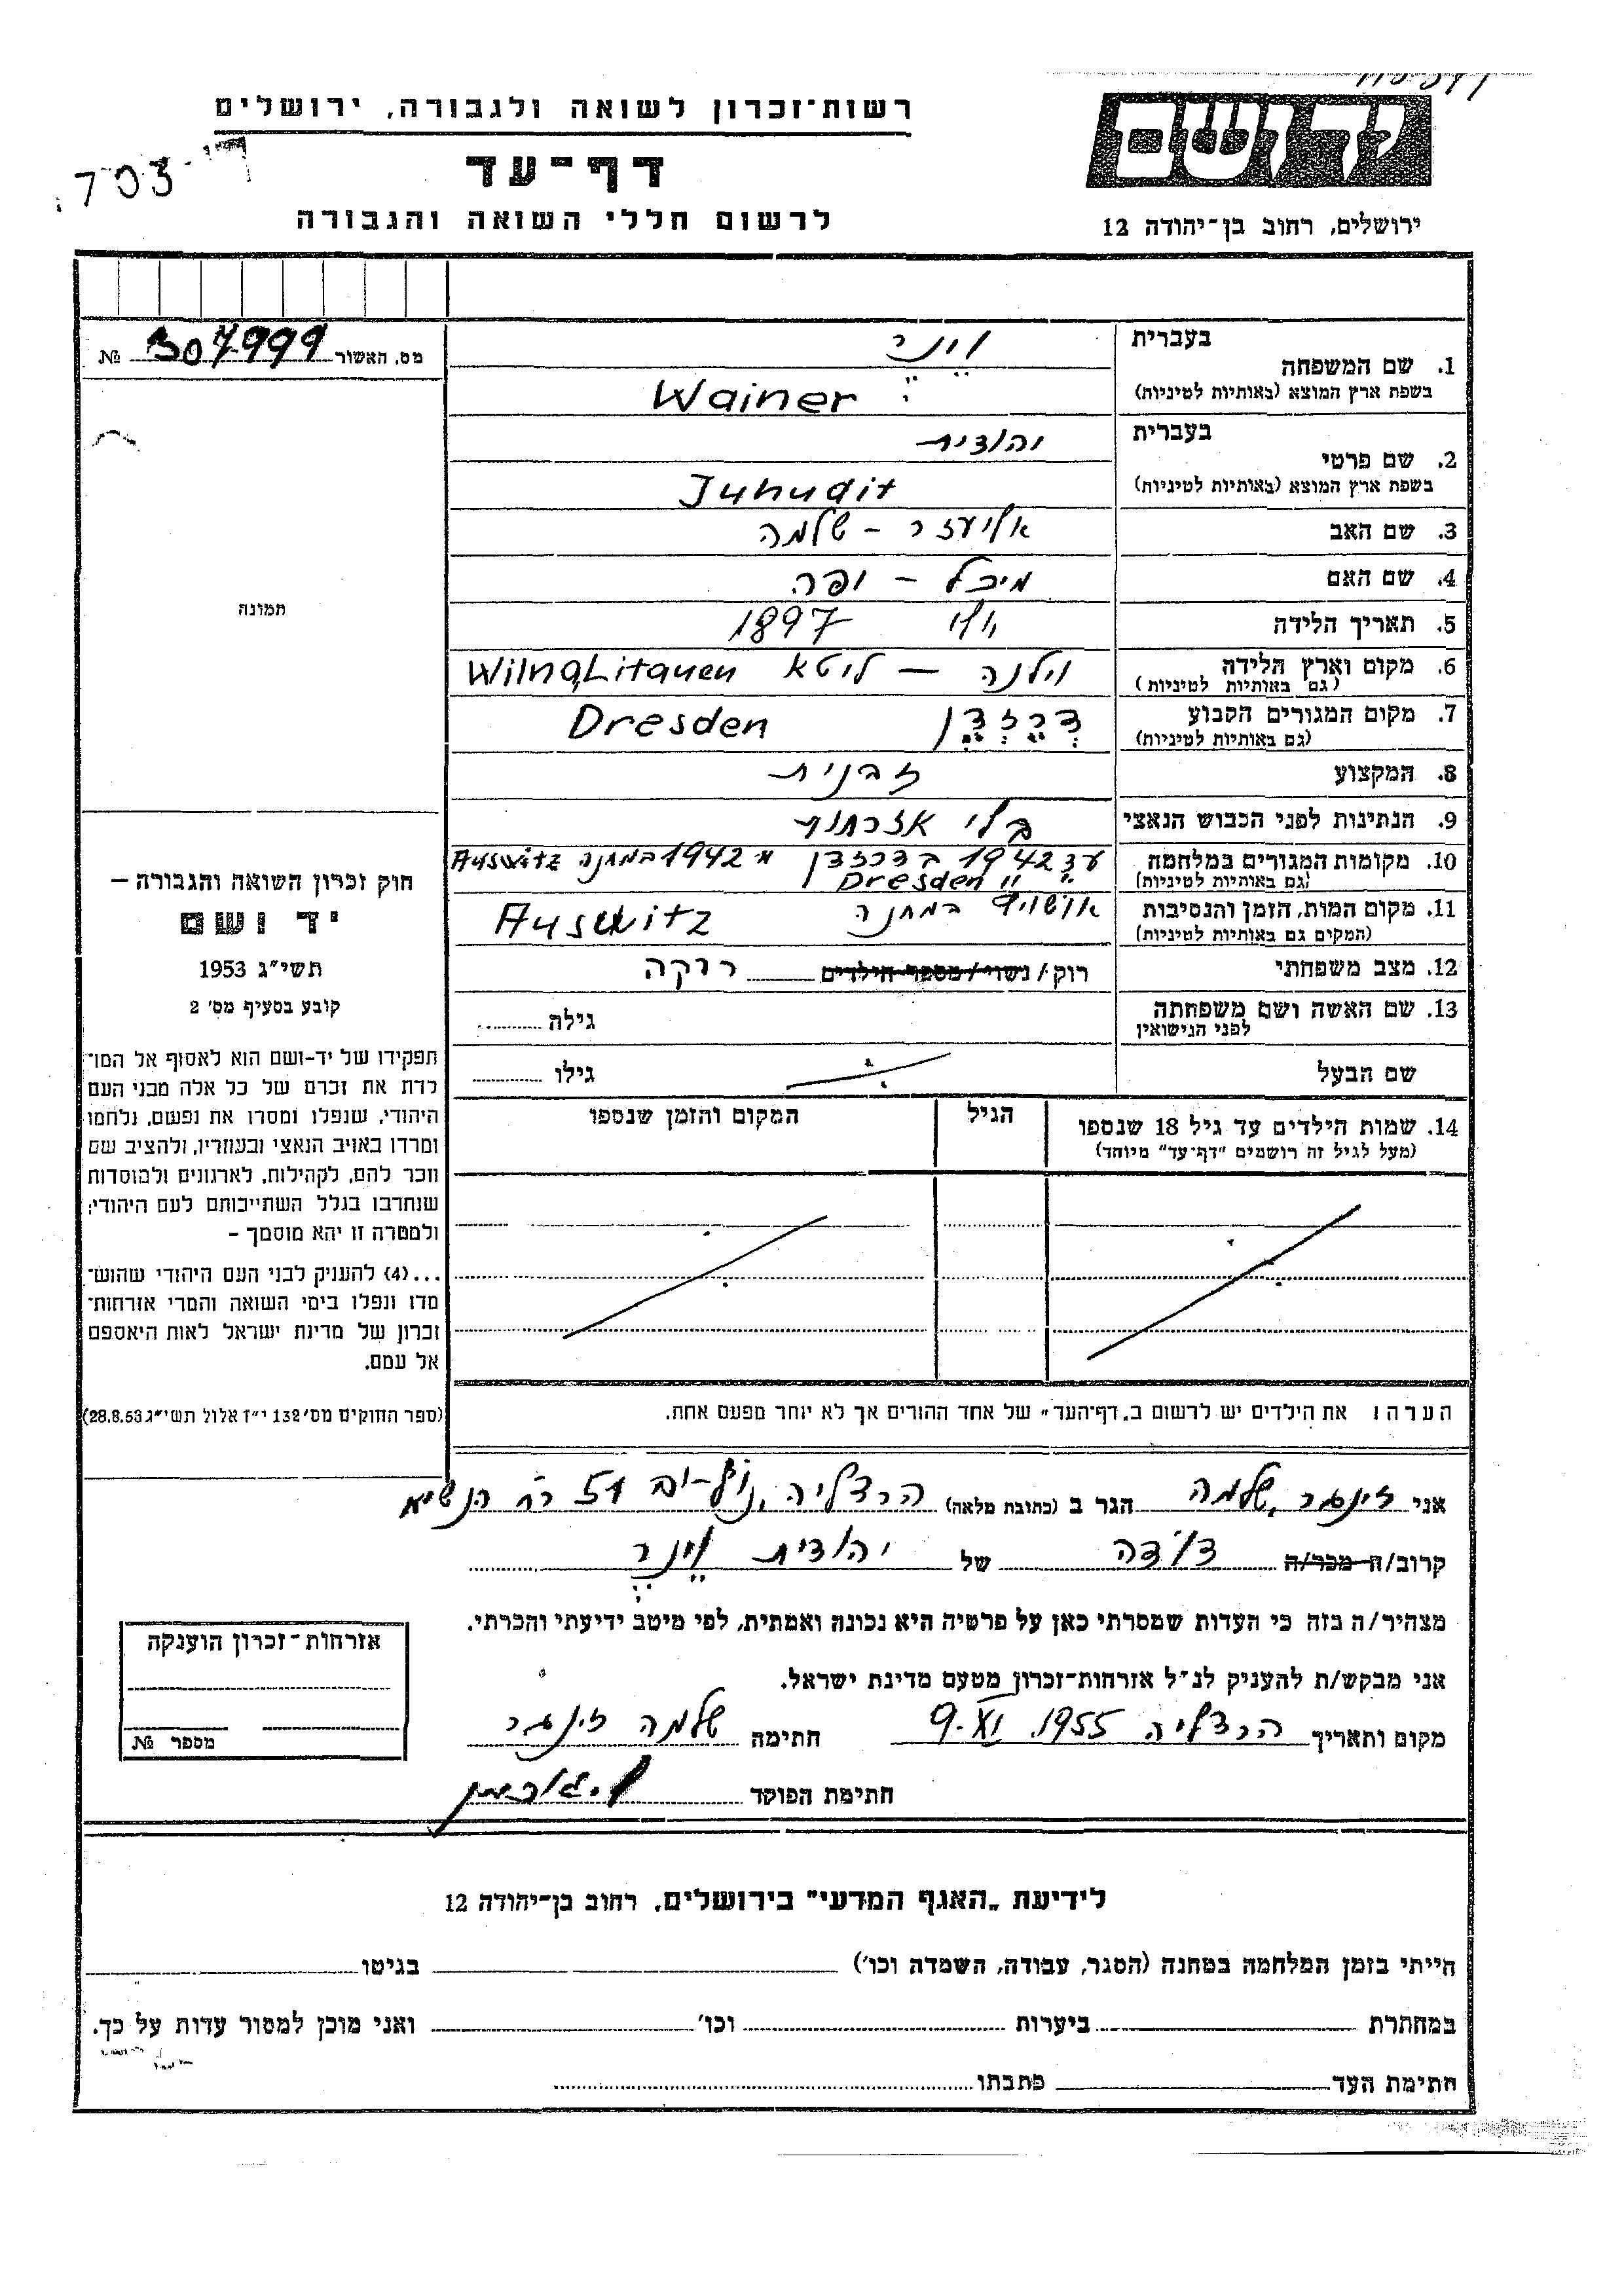 רשות־זכרון לשואה ולגבורה, ירושלים
דף־עד
לרשום חללי השואה והגבורה
703-
יד ושם
ירושלים, רחוב בן־יהודה 12
מס. האשור 307999 №
תמונה
חוק זכרון השואה והגבורה –
יד ושם
תשי״ג 1953
קובע בסעיף מס׳ 2
תפקידו של יד-ושם הוא לאסוף אל המו־
לדת את זכרם של כל אלה מבני העם
היהודי, שנפלו ומסרו את נפשם, נלחמו
ומרדו באויב הנאצי ובעוזריו, ולהציב שם
וזכר להם, לקהילות, לארגונים ולמוסדות
שנחרבו בגלל השתייכותם לעם היהודי;
ולמטרה זו יהא מוסמך –
...(4) להעניק לבני העם היהודי שהוש־
מדו ונפלו בימי השואה והמרי אזרחות־
זכרון של מדינת ישראל לאות היאספם
אל עמם.
(ספר החוקים מס׳ 132 י״ז אלול תשי״ג 28.8.53)
בעברית וינר
1. שם המשפחה
בשפת ארץ המוצא (באותיות לטיניות) Wainer
בעברית יהודית
2. שם פרטי
בשפת ארץ המוצא (באותיות לטיניות) Juhudit
3. שם האב אליעזר – שלמה
4. שם האם מיכל – יפה
5. תאריך הלידה 1897
6. מקום וארץ הלידה וילנה – ליטא Wilna, Litauen
(גם באותיות לטיניות)
7. מקום המגורים הקבוע דרזדן Dresden
(גם באותיות לטיניות)
8. המקצוע זבנית
9. הנתינות לפני הכבוש הנאצי בלי אזרחות
10. מקומות המגורים במלחמה עד 1942 בדרזדן מ 1942 במחנה Auswitz
(גם באותיות לטיניות) Dresden
11. מקום המות, הזמן והנסיבות במחנה אושויץ Auswitz
(המקום גם באותיות לטיניות)
12. מצב משפחתי רוק/נשוי/מספר הילדים רווקה
13. שם האשה ושם משפחתה גילה
לפני הנישואין
שם הבעל גילו
14. שמות הילדים עד גיל 18 שנספו הגיל המקום והזמן שנספו
(מעל לגיל זה רושמים "דף־עד" מיוחד)
הערה: את הילדים יש לרשום ב„דף־העד" של אחד ההורים אך לא יותר מפעם אחת.
אני זינגר שלמה הגר ב (כתובת מלאה) הרצליה, נוף-ים 51 רח הנשיא
קרוב/ה מכר/ה דודה של יהודית וינר
מצהיר/ה בזה כי העדות שמסרתי כאן על פרטיה היא נכונה ואמתית, לפי מיטב ידיעתי והכרתי.
אני מבקש/ת להעניק לנ״ל אזרחות־זכרון מטעם מדינת ישראל.
מקום ותאריך הרצליה 9.XI.1955 חתימה שלמה זינגר
חתימת הפוקד
אזרחות־זכרון הוענקה
מספר №
לידיעת „האגף המדעי" בירושלים, רחוב בן־יהודה 12
הייתי בזמן המלחמה במחנה (הסגר, עבודה, השמדה וכו׳) בגיטו
במחתרת ביערות וכו׳ ואני מוכן למסור עדות על כך.
חתימת העד כתבתו